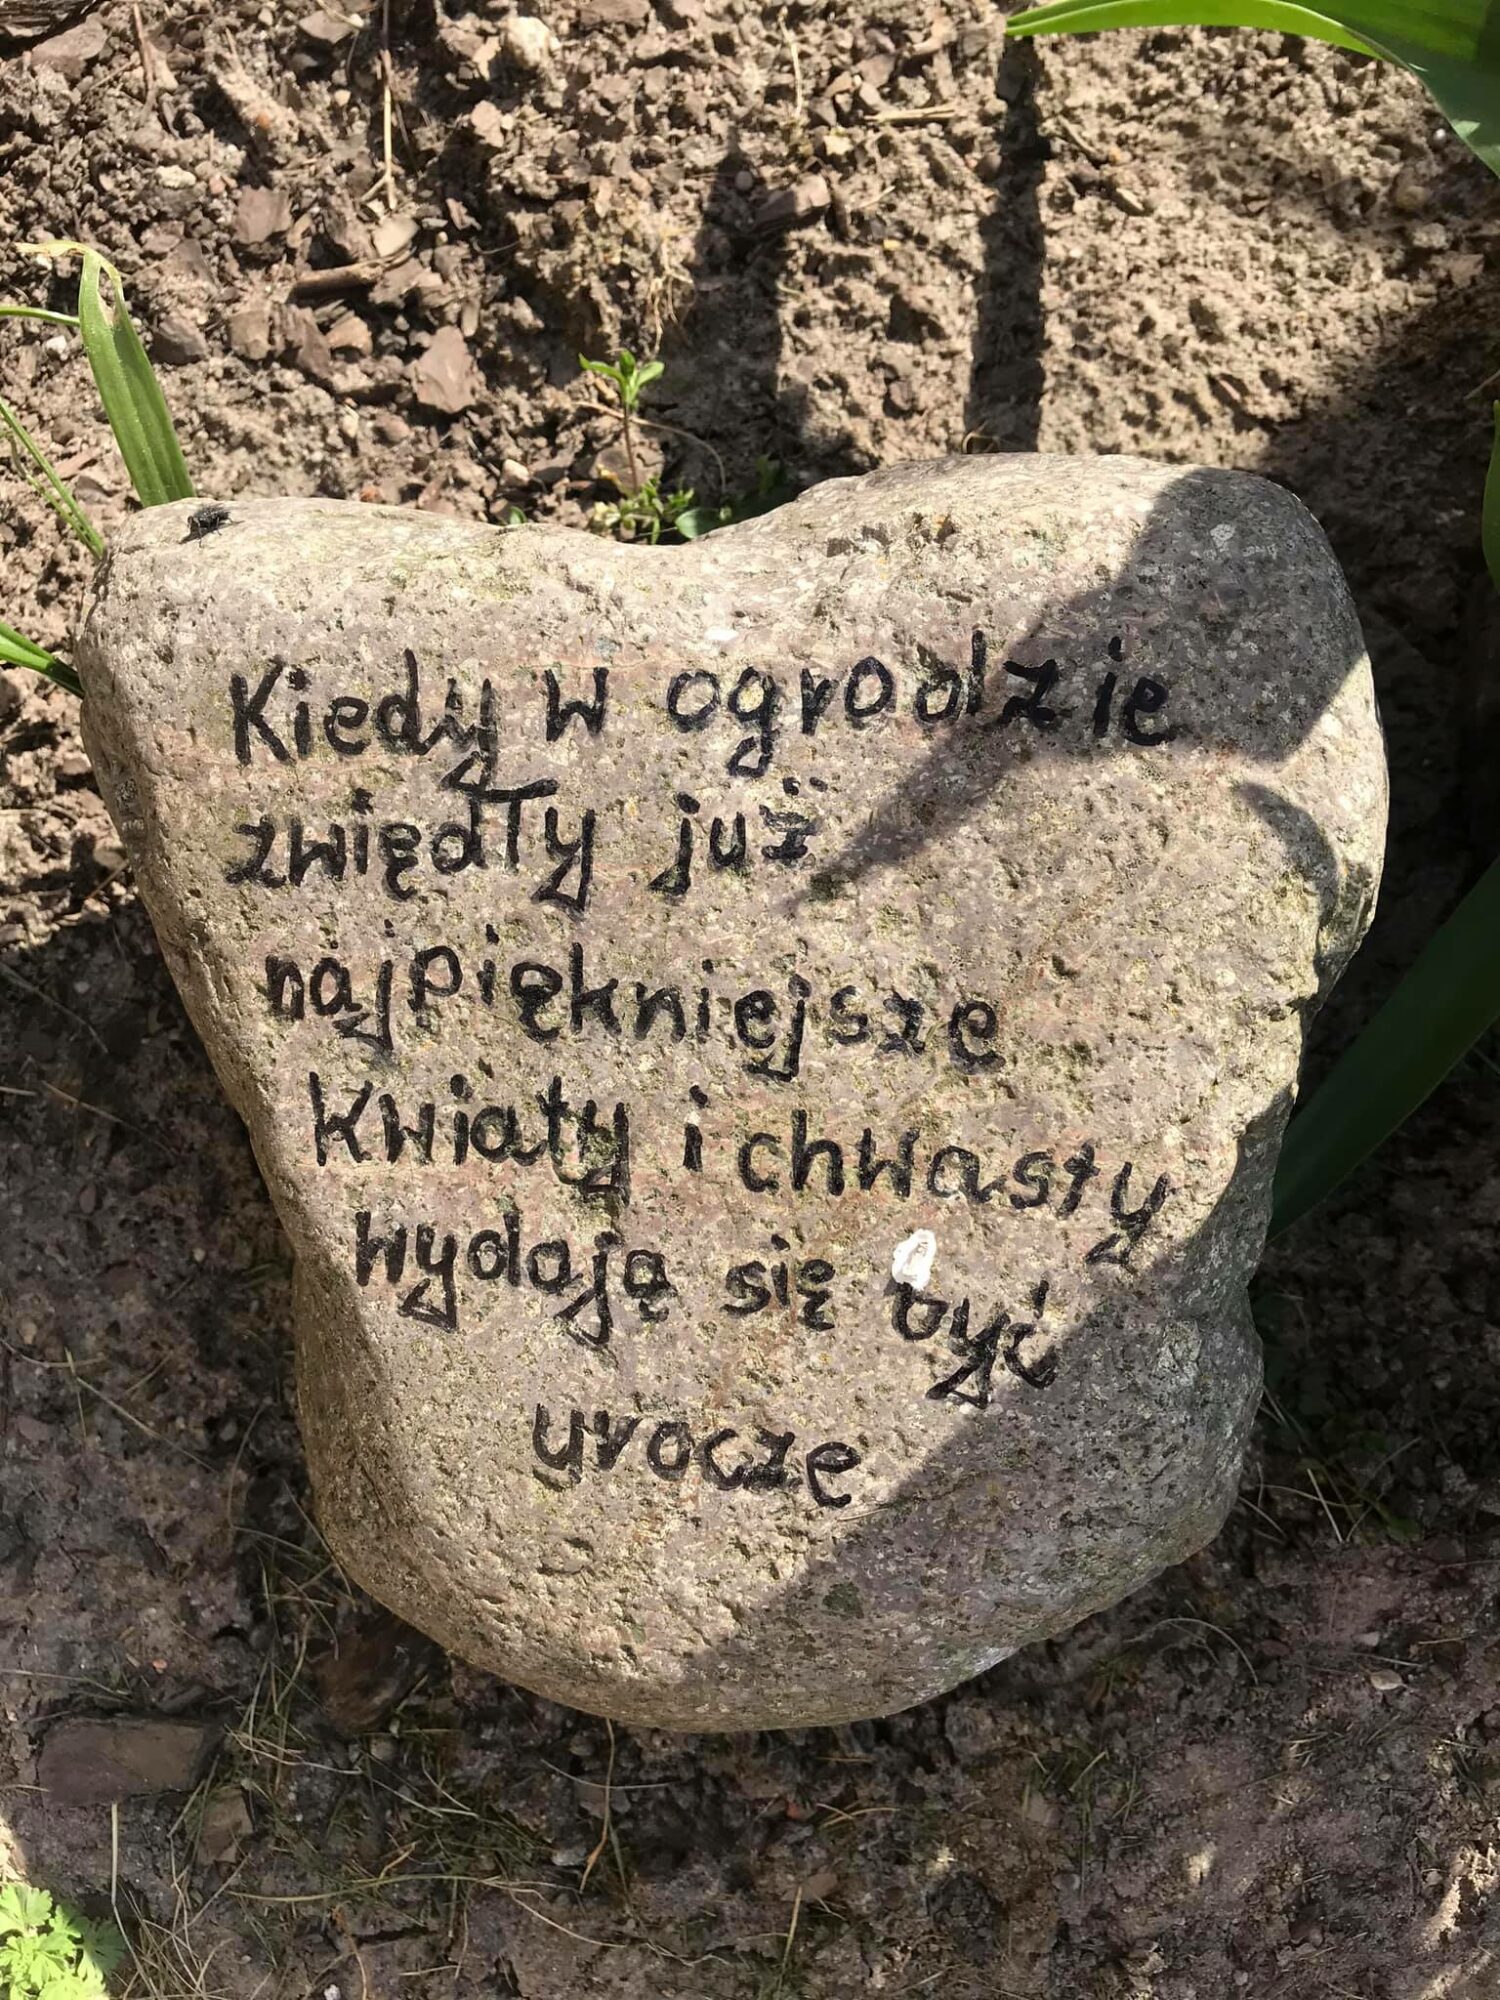 Kiedy w ogrodzie
zwiędły już
najpiękniejsze
kwiaty i chwasty
wydają się być
urocze